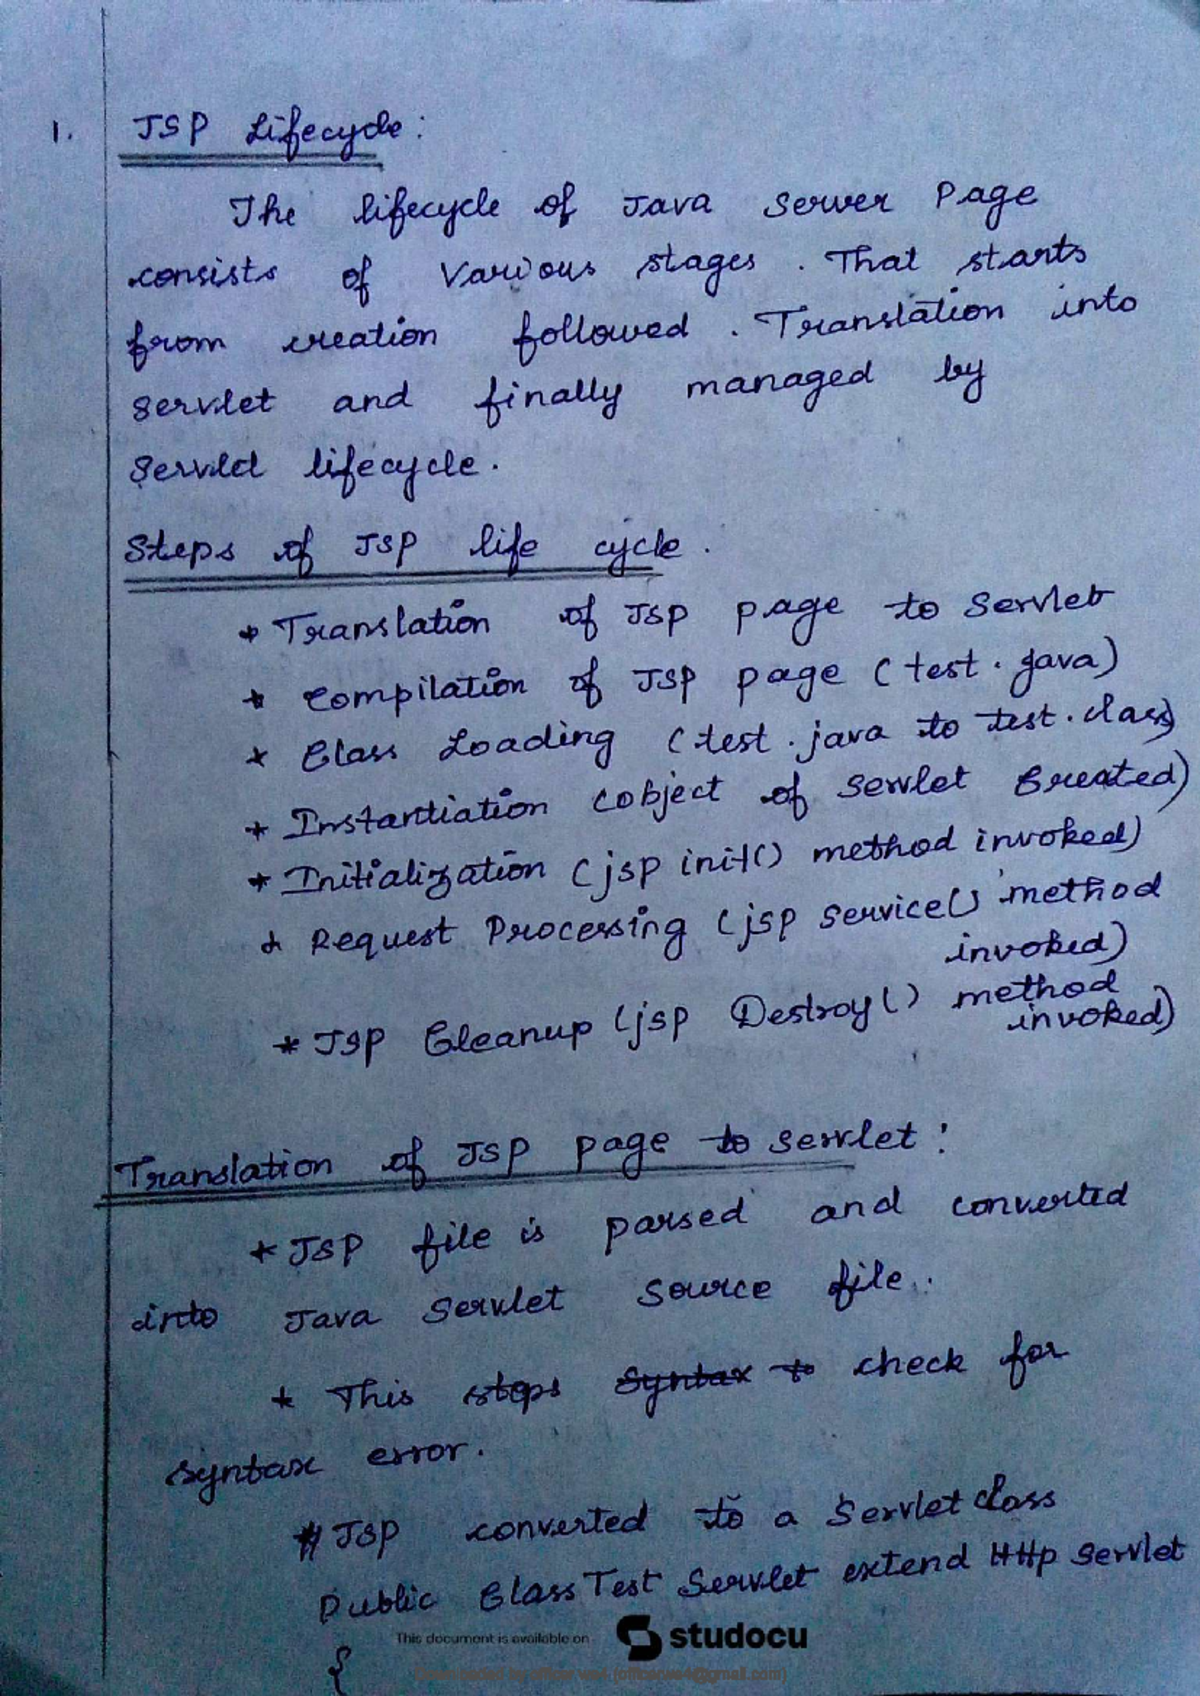 1. JSP Lifecycle:
The lifecycle of Java Server Page
consists of Various stages. That starts
from creation followed. Translation into
servlet and finally managed by
Servlet lifecycle.
Steps of JSP life cycle.
* Translation of JSP page to Servlet
* Compilation of JSP page (test.java)
* Class Loading (test.java to test.class)
* Instantiation (object of Servlet Created)
* Initialization (jsp init() method invoked)
* Request Processing (jsp service() method
invoked)
* JSP Cleanup (jsp Destroy() method
invoked)
Translation of JSP page to servlet:
* JSP file is parsed and converted
into Java Servlet Source file.
* This steps Syntax to check for
syntax error.
# JSP converted to a Servlet class
Public Class Test Servlet extend HHp Servlet
{
This document is available on studocu
(officecwe4@gmail.com)